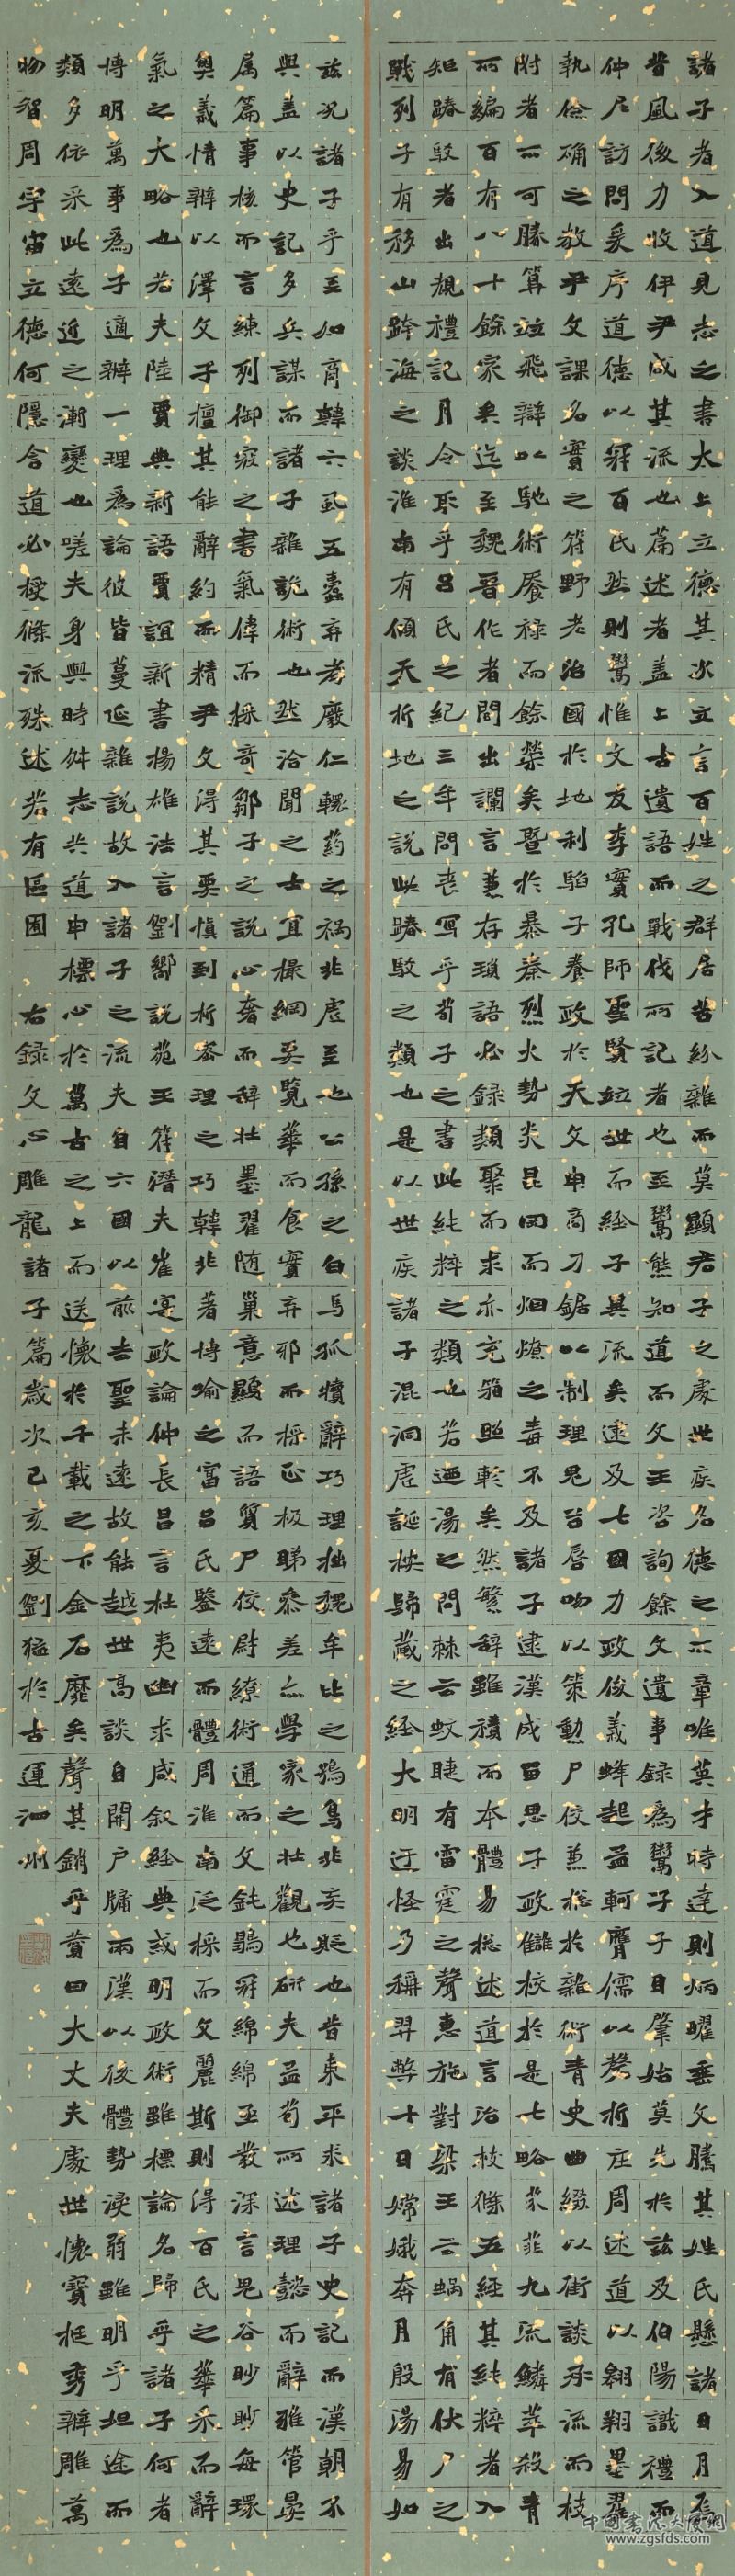 諸子者入道見志之書太上立德其次立言百姓之群居苦紛雜而莫顯君子之處世疾名德之不章唯英才時達則炳曜垂文騰其姓氏懸諸日月焉
昔風後力收伊尹咸其流也篇述者蓋上古遺語而戰伐所記者也至鬻熊知道而文王咨詢餘文遺事録為鬻子子目肇始莫先於兹及伯陽識禮而
仲尼訪問爰序道德以冠百氏然則鬻惟文友李實孔師聖賢竝世而經子異流矣逮及七國力政俊義蜂起孟軻膺儒以磬折莊周述道以翱翔墨翟
執儉确之教尹文課名實之符野老治國於地利騶子養政於天文申商刀鋸以制理鬼谷唇吻以策勳尸佼兼總於雜術青史曲綴以街談承流而枝
附者不可勝算竝飛辯以馳術饜禄而餘榮矣暨於暴秦烈火勢炎昆岡而烟燎之毒不及諸子逮漢成留思子政讎校於是七略芬菲九流鱗萃殺青
所編百有八十餘家矣迄至魏晉作者間出讕言兼存瑣語必録類聚而求亦充箱照軫矣然繁辭雖積而本體易總述道言治枝條五經其純粹者入
矩踳駁者出規禮記月令取乎吕氏之紀三年問喪寫乎荀子之書此純粹之類也若迺湯之問棘云蚊睫有雷霆之聲惠施對梁王云蝸角有伏尸之
戰列子有移山跨海之談淮南有傾天折地之說此踳駁之類也是以世疾諸子混洞虛誕按歸藏之經大明迂怪乃稱羿弊十日嫦娥奔月殷湯易如
兹况諸子乎至如商韓六虱五蠹弃孝廢仁轘药之禍非虛至也公孫之白馬孤犢辭巧理拙魏牟比之鴞鳥非妄貶也昔東平求諸子史記而漢朝不
與蓋以史記多兵謀而諸子雜詭術也然洽聞之士宜撮綱要覽華而食實弃邪而採正極睇參差亦學家之壯觀也研夫孟荀所述理懿而辭雅管晏
属篇事核而言練列御寇之書氣偉而採奇鄒子之說心奢而辭壯墨翟随巢意顯而語質尸佼尉繚術通而文鈍鶡冠綿綿亟發深言鬼谷眇眇每環
奥義情辨以澤文子擅其能辭約而精尹文得其要慎到析密理之巧韓非著博喻之富吕氏鑒遠而體周淮南泛採而文麗斯則得百氏之華采而辭
氣之大略也若夫陸賈典新語賈誼新書揚雄法言劉嚮說苑王符潛夫崔寔政論仲長昌言杜夷幽求咸叙經典或明政術雖標論名歸乎諸子何者
博明萬事為子適辨一理為論彼皆蔓延雜說故入諸子之流夫自六國以前去聖未遠故能越世高談自開户牖兩漢以後體勢浸弱雖明乎坦途而
類多依采此遠近之漸變也嗟夫身與時舛志共道申標心於萬古之上而送懷於千載之下金石靡矣聲其銷乎贊曰大丈夫處世懷寶挺秀辨雕萬
物智周宇宙立德何隱含道必授條流殊述若有區囿 右録文心雕龍諸子篇歲次己亥夏劉猛於古運泗州
中国书法大厦网
www.zgsfds.com